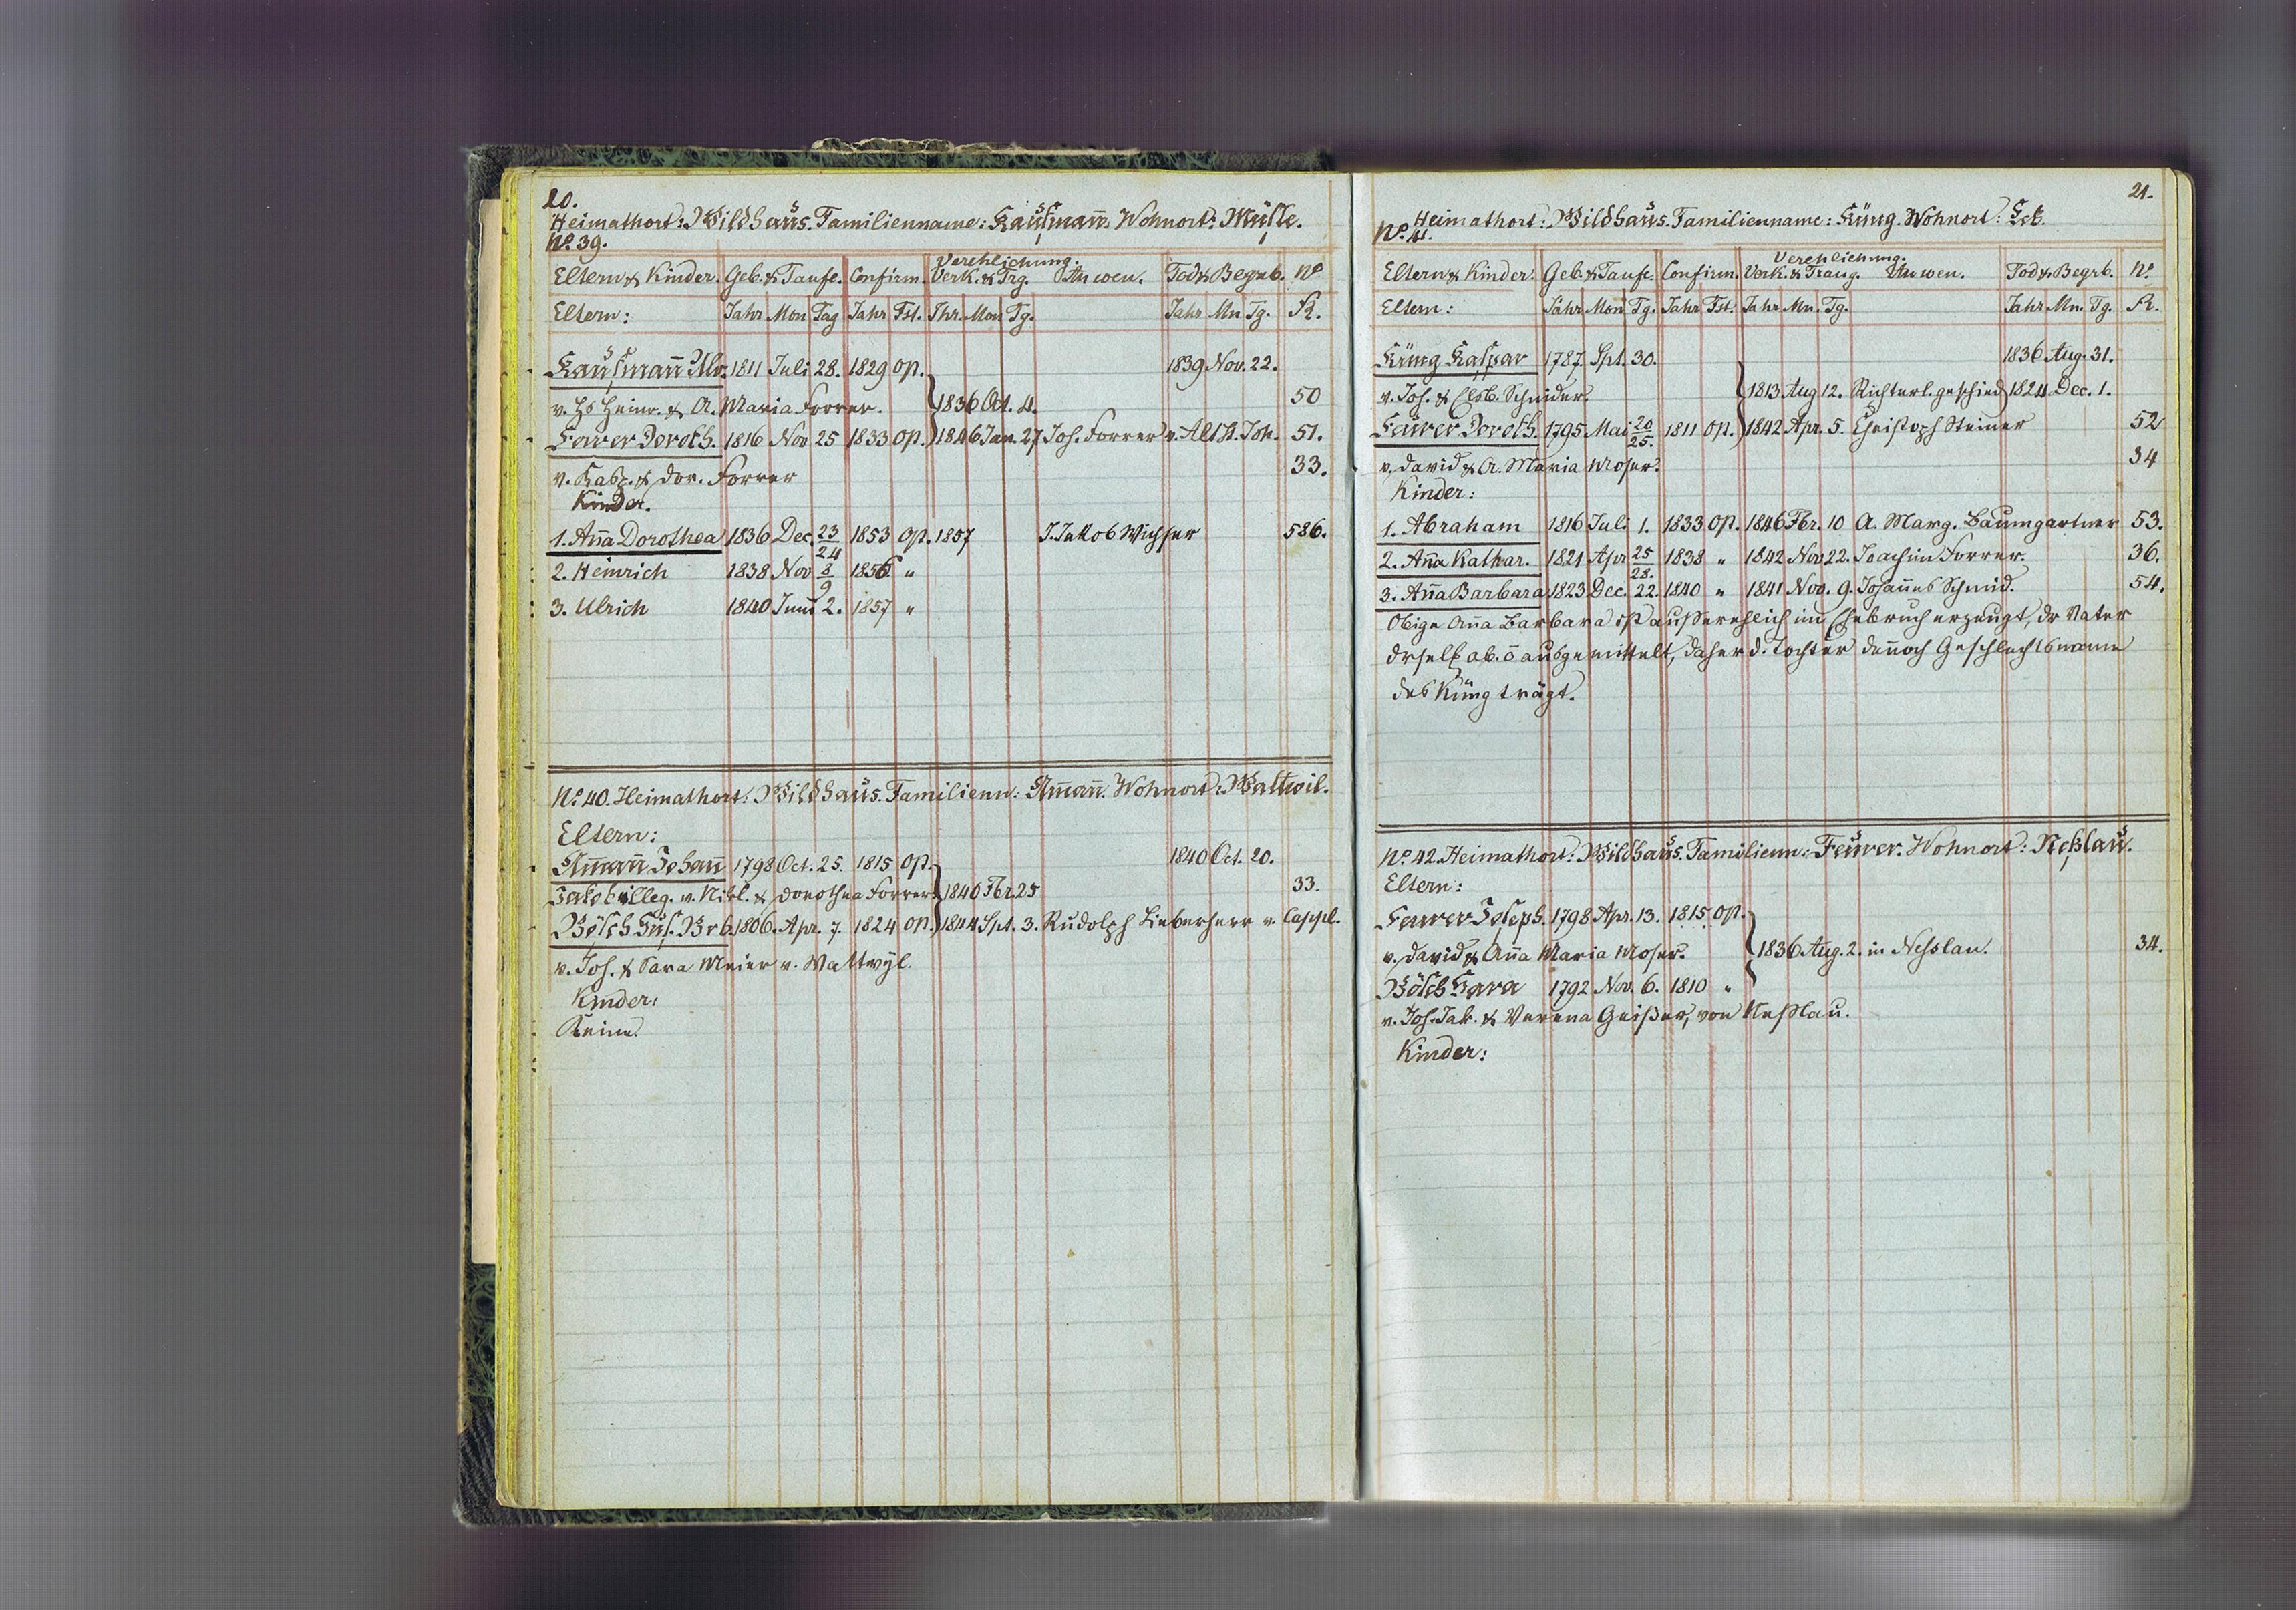 20.
Heimathort: Wildhaus. Familienname: Kaufmañ. Wohnort: Müsle.
No. 39.
Verehlichung.
Eltern & Kinder. Geb. & Taufe. Confirm. Verk. & Trg. Anwen. Tod & Begrb. No
Eltern: Jahr Mon Tag Jahr Fst. Jhr. Mon Tg. Jahr Mn Tg. R.
Kaufmañ Ulr. 1811 Juli 28. 1829 Op. 1839 Nov. 22.
v. Hs Heinr. & A. Maria Forrer. 1836 Oct. 4. 50
Feurer Doroth. 1816 Nov 25 1833 Op. 1846 Jan. 27 Joh. Forrer v. Alt St. Joh. 51.
v. & Dor. Forrer 33.
Kinder.
1. Aña Dorothea 1836 Dec. 23/24 1853 Op. 1857 J. Jakob 586.
2. Heinrich 1838 Nov 8/9 1856 "
3. Ulrich 1840 Juni 2. 1857 "
No. 40. Heimathort: Wildhaus. Familienn: Am̄añ. Wohnort: Wattwil.
Eltern:
Am̄añ Johañ 1798 Oct. 25. 1815 Op. 1840 Oct. 20.
Jakob illeg. v. Nikl. & Dorothea Forrer. 1840 Fbr. 25 33.
Bösch Sus. Brb. 1806. Apr. 7. 1824 Op. 1844 Spt. 3. Rudolph Lieberherr v. Cappl.
v. Jos. & Sara Meier v. Wattwyl.
Kinder:
Keine.
21.
Heimathort: Wildhaus. Familienname: Küng. Wohnort: Eck.
No. 41.
Verehlichung.
Eltern & Kinder. Geb. & Taufe. Confirm. Verk. & Traug. Anwen. Tod & Begrb. No
Eltern: Jahr Mon Tg. Jahr Fst. Jahr Mn. Tg. Jahr Mn. Tg. R.
Küng Kaspar 1787. Spt. 30. 1836 Aug. 31.
v. Jos. & Elsb. Schnider. 1813 Aug 12. Richterl. geschied 1824 Dec. 1.
Feurer Doroth. 1795 Mai 20/25. 1811 Op. 1842 Apr. 5. Christoph Steiner 52
v. David & A. Maria Moser. 34
Kinder:
1. Abraham 1816 Juli 1. 1833 Op. 1846 Fbr. 10 A. Marg. Baumgartner 53.
2. Aña Kathar. 1821 Apr 25/28. 1838 " 1842 Nov 22. Joachim Forrer. 36.
3. Aña Barbara 1823 Dec. 22. 1840 " 1841 Nov. 9. Johañes Schmid. 54.
Obige Aña Barbara ist außerehlich im Ehebruch erzeugt, dr Vater
drselb ab. õ ausgemittelt, daher d. Tochter deñoch Geschlechtsname
des Küng trägt.
No. 42. Heimathort: Wildhaus. Familienn: Feurer. Wohnort: Neßlau.
Eltern:
Feurer Joseph. 1798 Apr. 13. 1815 Op.
v. David & Aña Maria Moser. 1836 Aug. 2. in Nesslau. 34.
Bösch Sara 1792 Nov. 6. 1810 "
v. Jos. Jak. & Verena Geißer, von Neßlau.
Kinder: